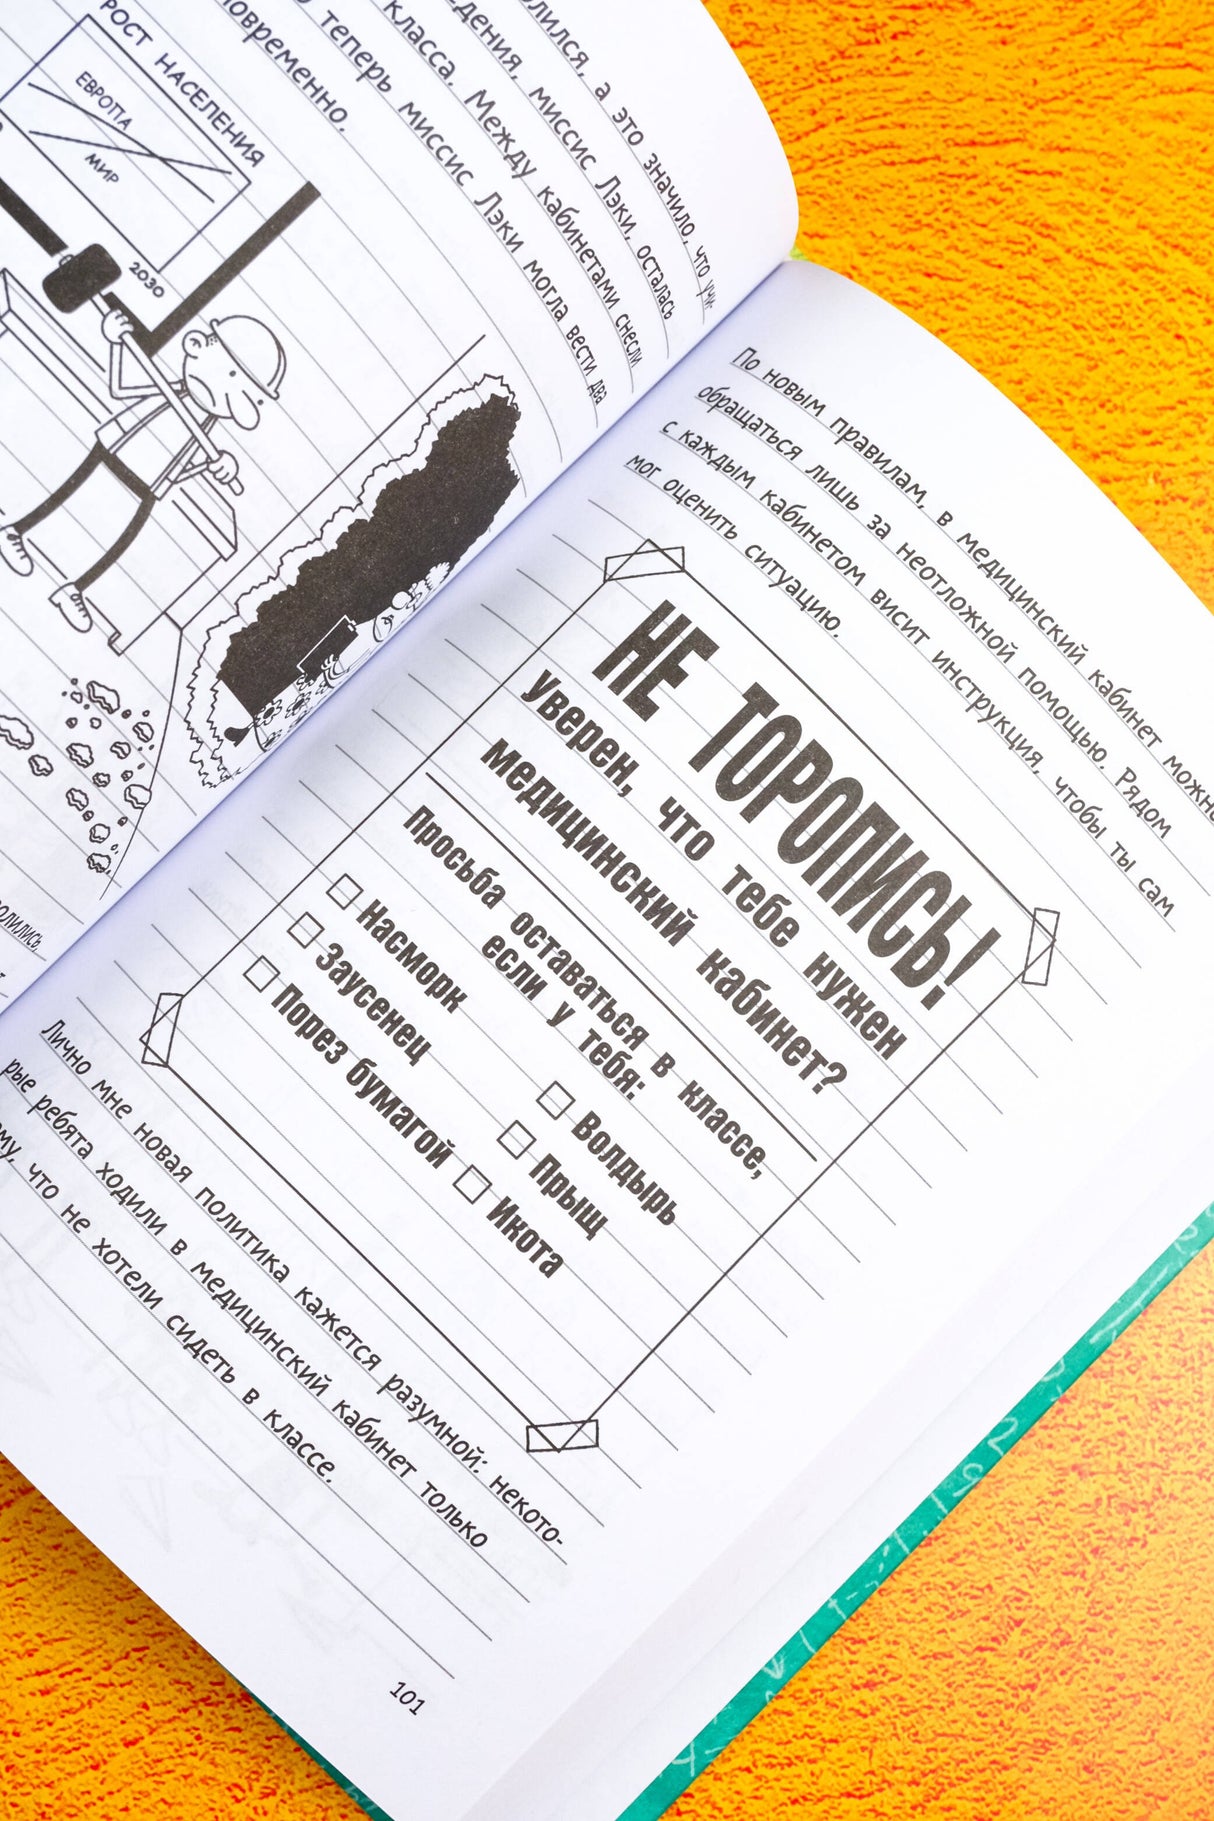 а это значило, что учи-
миссис Лэки, осталась
класса. Между кабинетами снесли
теперь миссис Лэки могла вести два
РОСТ НАСЕЛЕНИЯ
ЕВРОПА
МИР
2030
По новым правилам, в медицинский кабинет можно
обращаться лишь за неотложной помощью. Рядом
с каждым кабинетом висит инструкция, чтобы ты сам
мог оценить ситуацию.
НЕ ТОРОПИСЬ!
Уверен, что тебе нужен
медицинский кабинет?
Просьба оставаться в классе,
если у тебя:
Насморк
Заусенец
Порез бумагой
Волдырь
Прыщ
Икота
Лично мне новая политика кажется разумной: некото-
рые ребята ходили в медицинский кабинет только
что не хотели сидеть в классе.
101